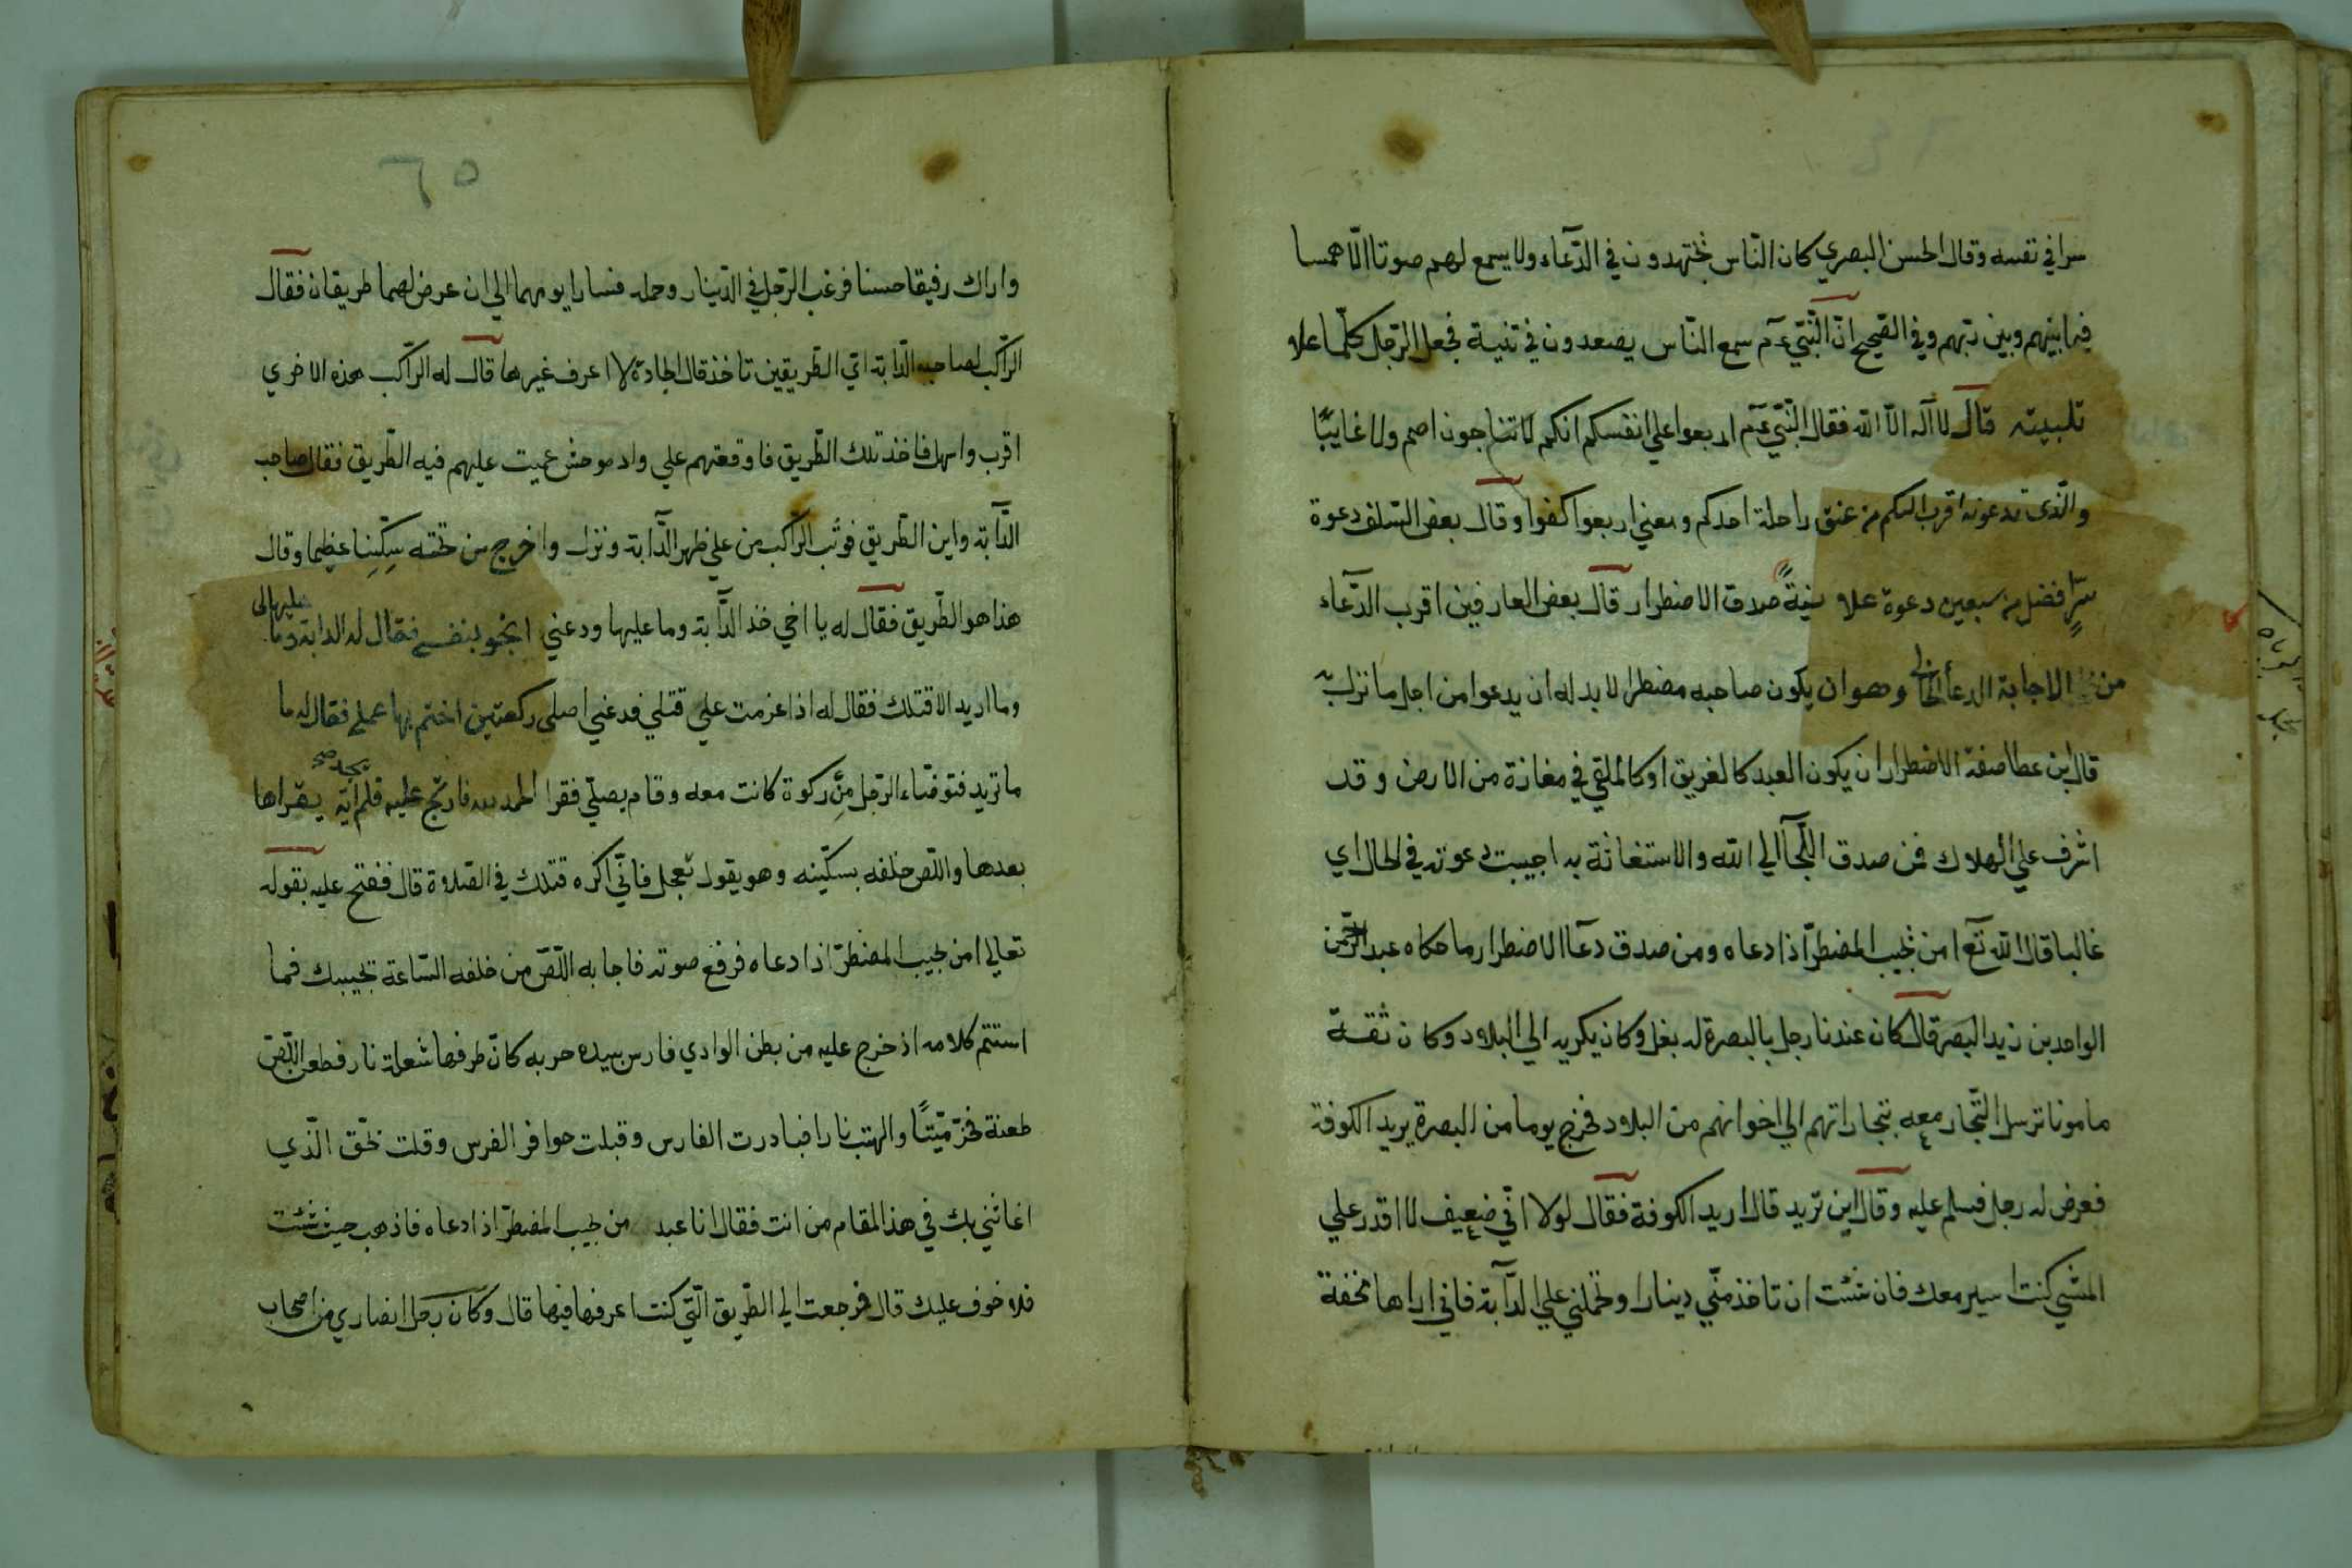 ٦٤
سرا في نفسه وقال الحسن البصري كان الناس يجتهدون في الدّعآء ولا يسمع لهم صوتا الّا همسا
فيما بينهم وبين ربّهم وفي الصّحيح انّ النّبيّ عم سمع النّاس يصعدون في ثنية فجعل الرّجل كلّما علا
تلبيته قال لا اله الّا الله فقال النّبيّ عم اربعوا علي انفسكم انكم لا تناجون اصم ولا غايبًا
والّذي تدعونه اقرب اليكم من عنق راحلة احدكم ومعني اربعوا كفوا وقال بعض السّلف دعوة
سرٍّ افضل من سبعين دعوة علا نيةً صدق الاضطرار قال بعض العارفين اقرب الدّعآء
من الاجابة الدعآ الحالي وهو ان يكون صاحبه مضطرا لا بد له ان يدعوا من اجل ما نزل به
قال ابن عطا صفة الاضطرار ان يكون العبد كالغريق او كالملقي في مفازة من الارض وقد
اشرف علي الهلاك فمن صدق اللّجآ الي الله والاستغاثة به اجيبت دعوته في الحال اي
غالبا قال الله تع امن يجيب المضطرّ اذا دعاه ومن صدق دعآ الاضطرار ما حكاه عبد الرّحمن
الواحد بن زيد البصر قال كان عندنا رجل بالبصرة له بغل وكان يكريه الي البلاد وكان ثقة
مامونا ترسل التّجار معه بتجاراتهم الي اخوانهم من البلاد فخرج يوما من البصرة يريد الكوفة
فعرض له رجل فسلم عليه وقال اين تريد قال اريد الكوفة فقال لولا انّي ضعيف لا اقدر علي
المشي كنت اسير معك فان شئت ان تاخذ منّي دينارا وتحملني علي الدّآبة فاني اراها مخفة
٦٥
واراك رفيقا حسنا فرغب الرّجل في الدّينار وحمله فسارا يومهما الي ان عرض لهما طريقان فقال
الرّاكب لصاحب الدّابة اي الطّريقين تاخذ قال الجادة لا اعرف غيرها قال له الرّاكب هذه الاخري
اقرب واسهل فاخذ تلك الطّريق فاوقعتهم علي واد موحش عميت عليهم فيه الطّريق فقال صاحب
الدّآبة واين الطّريق فوثب الرّاكب من علي ظهر الدّآبة ونزل واخرج من تحته سِكّينا عظيما وقال
هذا هو الطّريق فقال له يا اخي خذ الدّآبة وما عليها ودعني انجو بنفسي فقال له الدابة وما عليها لي
وما اريد الا قتلك فقال له اذا عزمت علي قتلي فدعني اصلي ركعتين اختم بها عملي فقال له ما
ما تريد فتوضّاء الرّجل مِن ركوة كانت معه وقام يصلّي فقرا الحمد لله فارتج عليه فلم يجد صح اية يقراها
بعدها واللّص خلفه بسكّينه وهو يقول تعجل فانّي اكره قتلك في الصّلاة قال ففتح عليه بقوله
تعالي امن يجيب المضطرّ اذا دعاه فرفع صوته فاجابه اللّصّ من خلفه السّاعة تجيبك فما
استتم كلامه اذ خرج عليه من بطن الوادي فارس بيده حربه كانّ طرفها شعلة نار فطعن اللّصّ
طعنة فخرّ ميّتًا والهتب نارا فبادرت الفارس وقبلت حوافر الفرس وقلت بحّق الّذي
اغاثني بك في هذا المقام من انت فقال انا عبد من يجيب المضطرّ اذا دعاه فاذهب حيث شئت
فلا خوف عليك قال فرجعت الي الطّريق الّتي كنت اعرفها فيها قال وكان رجل انصاري من اصحاب